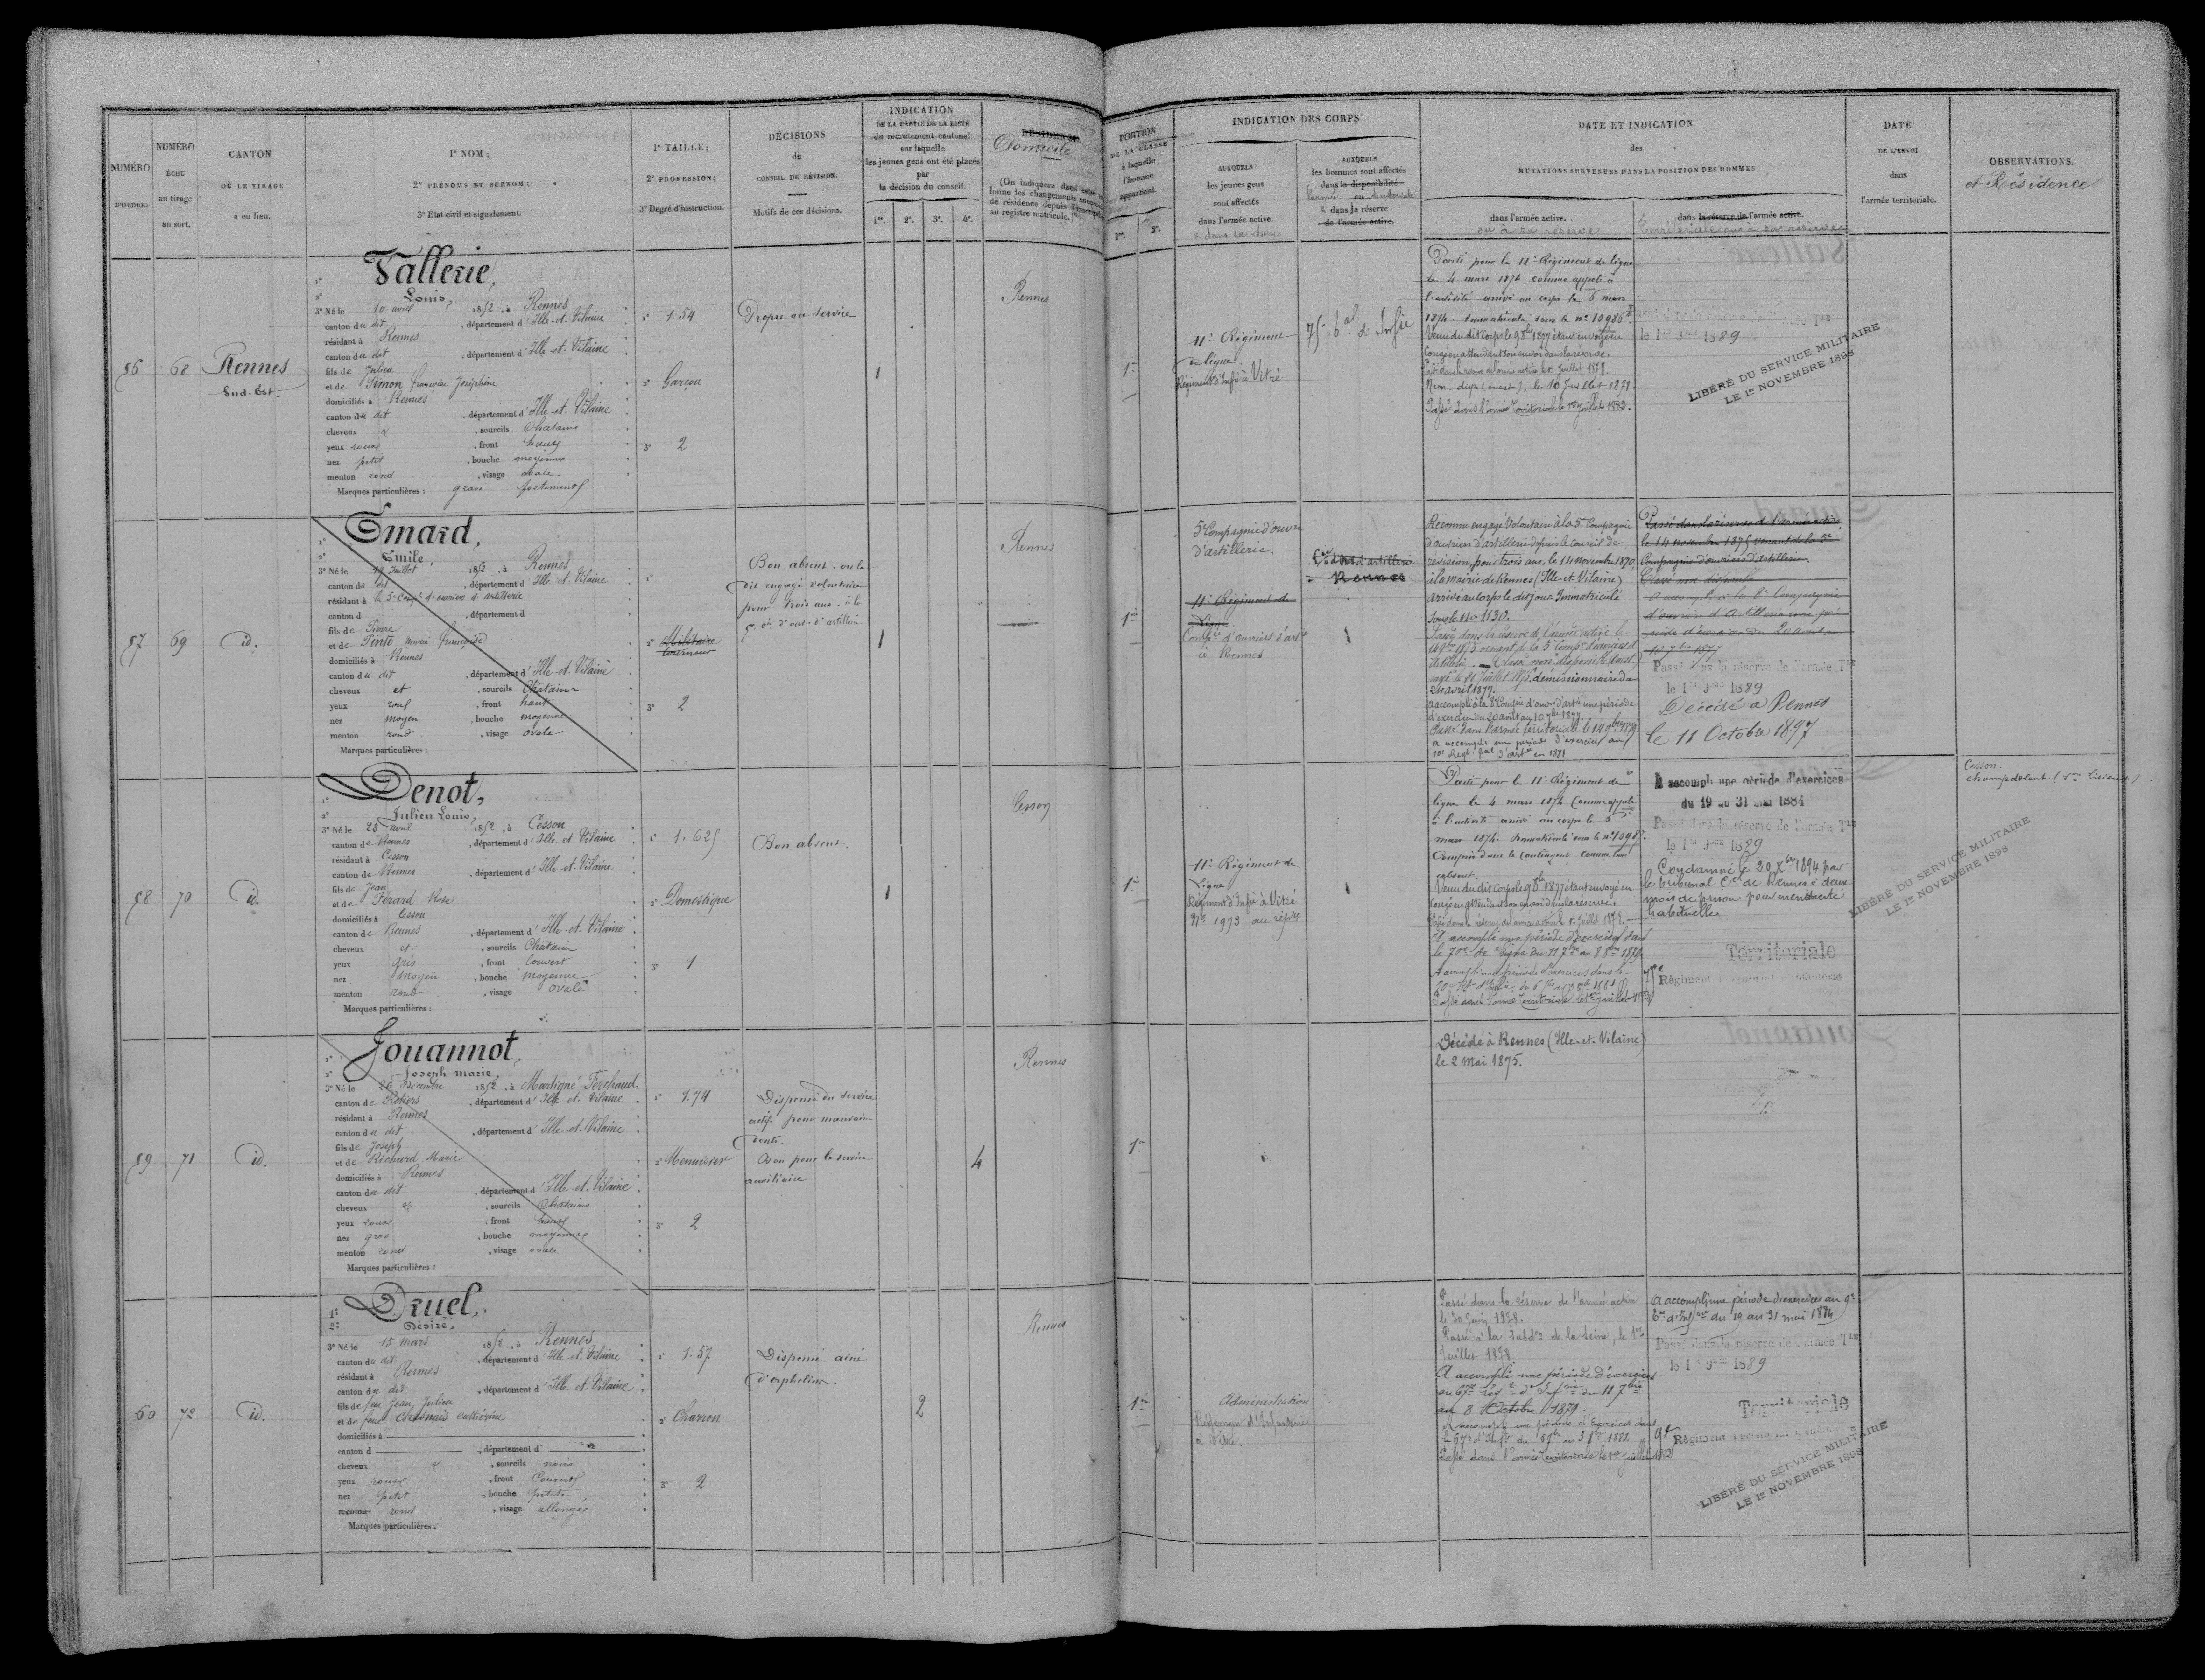 NUMÉRO
D'ORDRE.
NUMÉRO
ÉCHU
au tirage
au sort.
CANTON
OÙ LE TIRAGE
a eu lieu.
1° NOM;
2° PRÉNOMS ET SURNOM;
3° État civil et signalement.
1° TAILLE;
2° PROFESSION;
3° Degré d'instruction.
DÉCISIONS
du
CONSEIL DE RÉVISION.
Motifs de ces décisions.
INDICATION
DE LA PARTIE DE LA LISTE
du recrutement cantonal
sur laquelle
les jeunes gens ont été placés
par
la décision du conseil.
1re. 2e. 3e. 4e.
RÉSIDENCE
Domicile
(On indiquera dans cette
lonne les changements
de résidence depuis
au registre matricule.)
PORTION
DE LA CLASSE
à laquelle
l'homme
appartient.
1re. 2e.
INDICATION DES CORPS
AUXQUELS
les jeunes gens
sont affectés
dans l'armée active.
& dans sa réserve
AUXQUELS
les hommes sont affectés
dans la disponibilité
l'armée ou territoriale
& dans sa réserve
de l'armée active.
DATE ET INDICATION
des
MUTATIONS SURVENUES DANS LA POSITION DES HOMMES
dans l'armée active.
ou à sa réserve
dans la réserve de l'armée active.
territoriale ou à sa réserve
DATE
DE L'ENVOI
dans
l'armée territoriale.
OBSERVATIONS.
et Résidence
56
68
Rennes
Sud-Est.
1° Vallerie,
2° Louis,
3° Né le 10 avril 1852, à Rennes
canton du dit, département d'Ille-et-Vilaine
résidant à Rennes
canton du dit, département d'Ille-et-Vilaine
fils de Julien
et de Simon françoise Joséphine
domiciliés à Rennes
canton du dit, département d'Ille-et-Vilaine
cheveux &, sourcils Châtains
yeux roux, front haut
nez petit, bouche moyenne
menton rond, visage ovale
Marques particulières : gravé fortement
1° 1.54
2° Garçon
3° 2
Propre au service
1
Rennes
1re
11e Régiment
de ligne
Régiment d'Infie à Vitré
75e d'Infie
Parti pour le 11e Régiment de ligne
le 4 mars 1874 comme appelé à
l'activité arrivé au corps le 6 mars
1874. Immatriculé sous le n° 10986.
Venu du dit corps le 1877 étant envoyé en
congé en attendant son envoi dans la réserve.
Passé dans la réserve de l'armée active le 1er Juillet 1878.
Passé dans l'armée territoriale le 1er juillet 1882.
le 1er 1889
LIBÉRÉ DU SERVICE MILITAIRE
LE 1er NOVEMBRE 1898
57
69
id.
1° Emard,
2° Emile,
3° Né le 19 Juillet 1852, à Rennes
canton du dit, département d'Ille-et-Vilaine
résidant à la 5e Compie d'ouvriers d'artillerie
canton d, département d
fils de Pierre
et de Pinto Marie françoise
domiciliés à Rennes
canton du dit, département d'Ille-et-Vilaine
cheveux et, sourcils Châtain
yeux roux, front haut
nez moyen, bouche moyenne
menton rond, visage ovale
Marques particulières :
2° Militaire
tourneur
3° 2
Bon absent. on le
dit engagé volontaire
pour trois ans à la
5e Cie d'ouv. d'artillerie
1
Rennes
1re
5e Compagnie d'ouvrs
d'artillerie.
11e Régiment de
Ligne
Compie d'ouvriers d'artie
à Rennes
d'artillerie
Rennes
Reconnu engagé volontaire à la 5e Compagnie
d'ouvriers d'artillerie depuis le conseil de
révision, pour trois ans, le 14 novembre 1870,
à la mairie de Rennes (Ille-et-Vilaine)
arrivé au corps le dit jour. Immatriculé
sous le No 1130.
Passé dans la réserve de l'armée active le
14 9bre 1875 venant de la 5e Compie d'ouvriers d'
Artillerie. Classé non disponible
démissionnaire du
24 avril 1877.
a accompli à la 8e Compie d'ouvrs d'artie une période
d'exercices du 20 août au 10 7bre 1877.
Passé dans l'armée territoriale le 14 9bre 1879
a accompli une période d'exercices au
10e Regt d'artie en 1881
Passé dans la réserve de l'armée active
le 14 novembre 1875 venant de la 5e
Compagnie d'ouvriers d'artillerie.
Classé non disponible
a accompli à la 8e Compagnie
d'ouvriers d'Artillerie une pé-
riode d'exercices du 20 août au
10 7bre 1877
Passé dans la réserve de l'armée Tle
le 1er 1889
Décédé à Rennes
le 11 Octobre 1897
58
70
id.
1° Denot,
2° Julien Louis,
3° Né le 28 avril 1852, à Cesson
canton de Rennes, département d'Ille et Vilaine
résidant à Cesson
canton de Rennes, département d'Ille-et-Vilaine
fils de Jean
et de Férard Rose
domiciliés à Cesson
canton de Rennes, département d'Ille-et-Vilaine
cheveux et, sourcils Châtain
yeux gris, front couvert
nez moyen, bouche moyenne
menton rond, visage ovale
Marques particulières :
1° 1.625
2° Domestique
3° 1
Bon absent.
1
Cesson
1re
11e Régiment de
Ligne
Régiment d'Infie à Vitré
No 1973 au rép.
Parti pour le 11e Régiment de
ligne le 4 mars 1874 comme appelé
à l'activité arrivé au corps le 6
mars 1874. Immatriculé sous le n° 10987.
Compris dans le contingent comme bon
absent.
Venu du dit corps le 1877 étant envoyé en
congé en attendant son envoi dans la réserve.
Passé dans la réserve de l'armée active le 1er juillet 1878.
A accompli une période d'exercices dans
le 70e de ligne du 11 7bre au 8 8bre 1879.
A accompli une période d'exercices dans le
70e Rt d'Infie 1881
Passé dans l'armée territoriale le 1er juillet 1882
A accompli une période d'exercices
du 19 au 31 mai 1884
Passé dans la réserve de l'armée Tle
le 1er 1889
Condamné le 20 Xbre 1894 par
le tribunal Cel de Rennes à deux
mois de prison pour mendicité
habituelle
Territoriale
75e Régiment territorial d'infanterie
LIBÉRÉ DU SERVICE MILITAIRE
LE 1er NOVEMBRE 1898
Cesson.
champdolent
59
71
id.
1° Jouannot,
2° Joseph marie,
3° Né le 26 Décembre 1852, à Martigné-Ferchaud
canton de Retiers, département d'Ille-et-Vilaine
résidant à Rennes
canton du dit, département d'Ille-et-Vilaine
fils de Joseph
et de Richard Marie
domiciliés à Rennes
canton du dit, département d'Ille-et-Vilaine
cheveux &, sourcils Châtains
yeux roux, front haut
nez gros, bouche moyenne
menton rond, visage ovale
Marques particulières :
1° 1.74
2° Menuisier
3° 2
Dispensé du service
actif pour mauvaise
denture.
Bon pour le service
auxiliaire
4
Rennes
1re
Décédé à Rennes (Ille-et-Vilaine)
le 2 Mai 1875.
60
72
id.
1° Druel,
2° Désiré,
3° Né le 15 mars 1852, à Rennes
canton du dit, département d'Ille-et-Vilaine
résidant à Rennes
canton du dit, département d'Ille-et-Vilaine
fils de feu Jean Julien
et de feue Chesnais Catherine
domiciliés à
canton d, département d'
cheveux &, sourcils noirs
yeux roux, front Couvert
nez petit, bouche petite
menton rond, visage allongé
Marques particulières :
1° 1.57
2° Charron
3° 2
Dispensé. aîné
d'orphelins.
2
Rennes
1re
Administration
Régiment d'Infanterie
à Vitré.
Passé dans la réserve de l'armée active
le 30 Juin 1878.
Passé à la Subdon de la Seine, le 1er
Juillet 1878
A accompli une période d'exercices
au 67me régt d'Infie du 11 7bre
au 8 Octobre 1879.
A accompli une période d'Exercices dans
le 67e d'Infie 1881.
Passé dans l'armée territoriale le 1er juillet 1882
A accompli une période d'exercices au 9e
du 19 au 31 mai 1884
Passé dans la réserve de l'armée Tle
le 1er 1889
Territoriale
9e Régiment territorial d'infanterie
LIBÉRÉ DU SERVICE MILITAIRE
LE 1er NOVEMBRE 1898